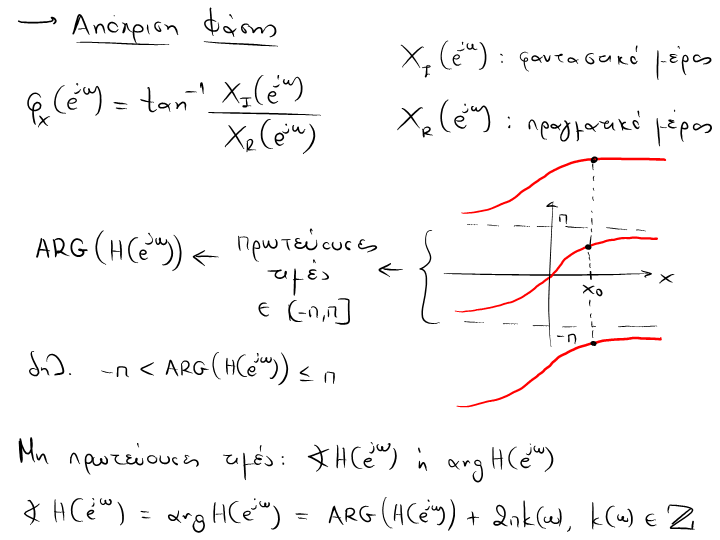 → Απόκριση Φάσης
φ_x(e^{jω}) = tan^{-1} X_I(e^{jω}) / X_R(e^{jω})
X_I(e^{jω}) : φανταστικό μέρος
X_R(e^{jω}) : πραγματικό μέρος
ARG(H(e^{jω})) ← πρωτεύουσες
τιμές
∈ (-π,π]
π
x
x_0
-π
δηλ. -π < ARG(H(e^{jω})) ≤ π
Μη πρωτεύουσες τιμές: ∢H(e^{jω}) ή arg H(e^{jω})
∢H(e^{jω}) = arg H(e^{jω}) = ARG(H(e^{jω})) + 2πk(ω), k(ω) ∈ ℤ